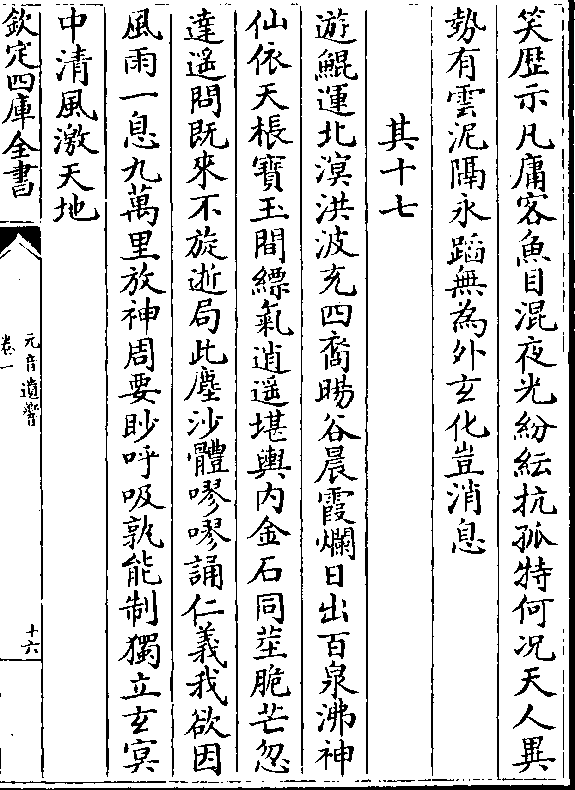 笑歴示凡庸客魚目混夜光紛紜抗孤特何况天人異
勢有雲泥隔永蹈無為外玄化豈消息
其十七
遊鯤運北溟洪波充四裔暘谷晨霞爛日出百泉沸神
仙依天棖寶玉間縹氣逍遥堪輿内金石同莖脆芒忽
達遥問既來不旋逝局此塵沙體嘐嘐誦仁義我欲因
風雨一息九萬里放神周要眇呼吸孰能制獨立玄冥
中清風激天地
欽定四庫全書
元音遺響
卷一
十六